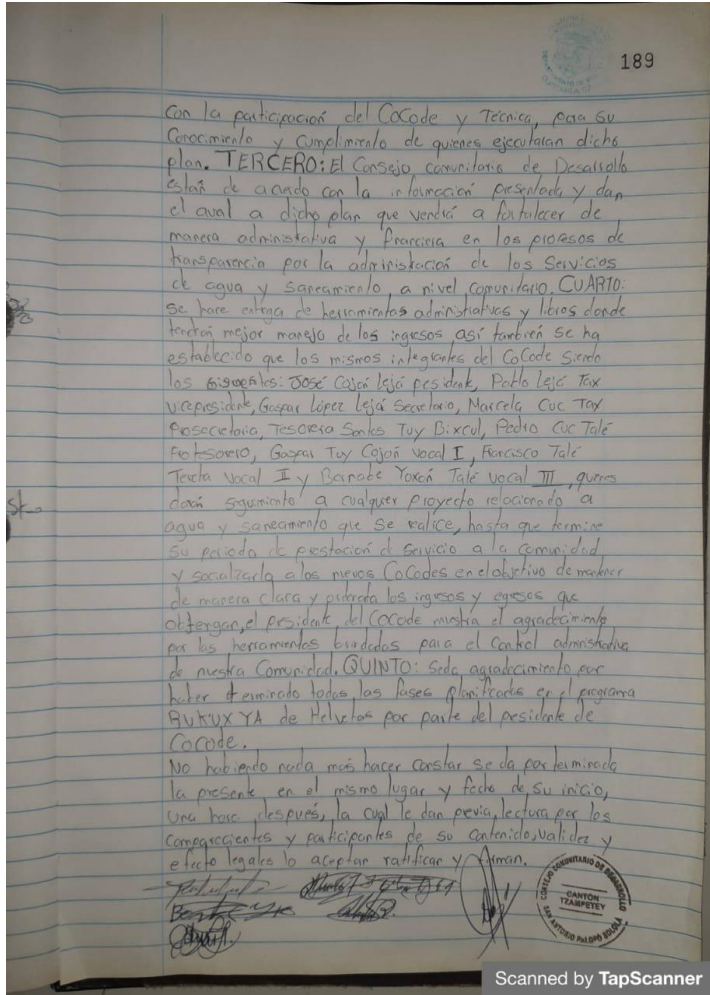 189
Con la participación del CoCode y Técnica, para su
Conocimiento y cumplimiento de quienes ejecutaran dicho
plan. TERCERO: El Consejo comunitario de Desarrollo
están de acuerdo con la información presentada y dan
el aval a dicho plan que vendrá a fortalecer de
manera administrativa y financiera en los procesos de
transparencia por la administración de los Servicios
de agua y saneamiento a nivel comunitario. CUARTO:
se hace entrega de herramientas administrativas y libros donde
tendrán mejor manejo de los ingresos así también se ha
establecido que los mismos integrantes del CoCode siendo
los siguientes: José Cojón Lejá presidente, Pablo Lejá Tax
vicepresidente, Gaspar López Lejá Secretario, Marcela Cuc Tax
Prosecretaria, Tesorera Santos Tuy Bixcul, Pedro Cuc Talé
Protesorero, Gaspar Tuy Cojón vocal I, Francisco Talé
vocal II y Bernabe Yaxón Talé vocal III, quienes
darán seguimiento a cualquier proyecto relacionado a
agua y saneamiento que se realice, hasta que termine
su periodo de prestación de servicio a la comunidad
y socializarlo a los nuevos CoCodes en el objetivo de mantener
de manera clara y ordenada los ingresos y egresos que
obtengan, el presidente del COCODE muestra el agradecimiento
por las herramientas brindadas para el Control administrativo
de nuestra Comunidad. QUINTO: Se da agradecimiento por
haber terminado todas las fases planificadas en el programa
RUK'UX YA de Helvetas por parte del presidente de
Cocode.
No habiendo nada más hacer constar se da por terminada
la presente en el mismo lugar y fecha de su inicio,
una hora después, la cual le dan previa lectura por los
comparecientes y participantes de su contenido, validez y
efecto legales lo aceptan ratifican y firman.
CONSEJO COMUNITARIO DE DESARROLLO
CANTÓN
TZAMPETEY
SAN ANTONIO PALOPÓ SOLOLÁ
Scanned by TapScanner